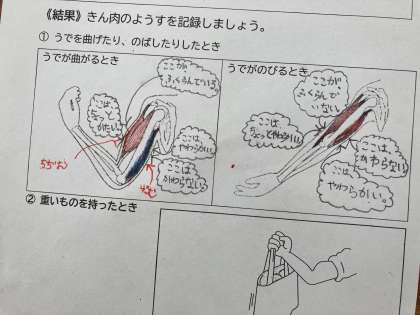 《結果》きん肉のようすを記録しましょう。
① うでを曲げたり、のばしたりしたとき
うでが曲がるとき
ここが
ふくらんでいる。
ここは、
ちょっと
かたい。
ここは、
やわらかい。
ここは、
かわらない。
ちぢむ
うでがのびるとき
ここが
ふくらんで
いない。
ここは、
ちょっとやわらかい。
ここは、
かわらない。
ここは、
やわらかい。
② 重いものを持ったとき